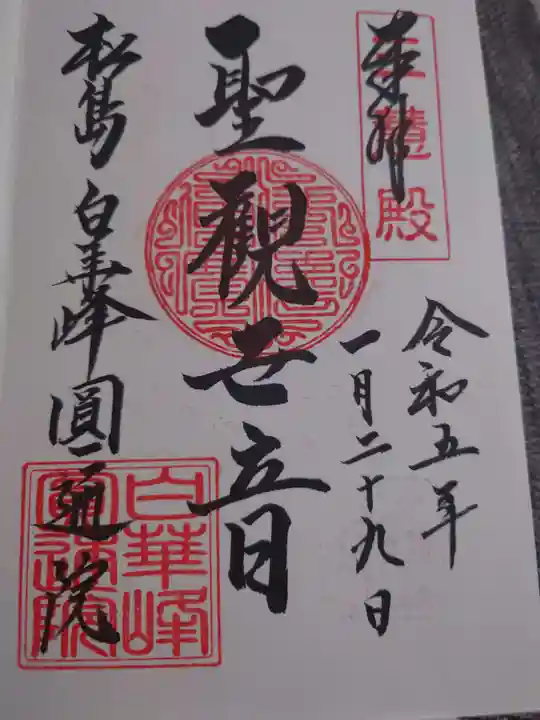 奉拝
三慧殿
令和五年
一月二十九日
聖觀世音
松島 白華峰 圓通院
白華峰
圓通院